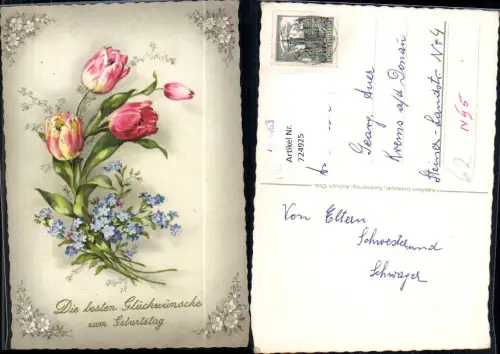 Die besten Glückwünsche
zum Geburtstag
Artikel Nr.
724925
Georg Auer
Krems a/d Donau
Steiner-Landstr. No 4
62 N95
Von Eltern
Schwester und
Schwager